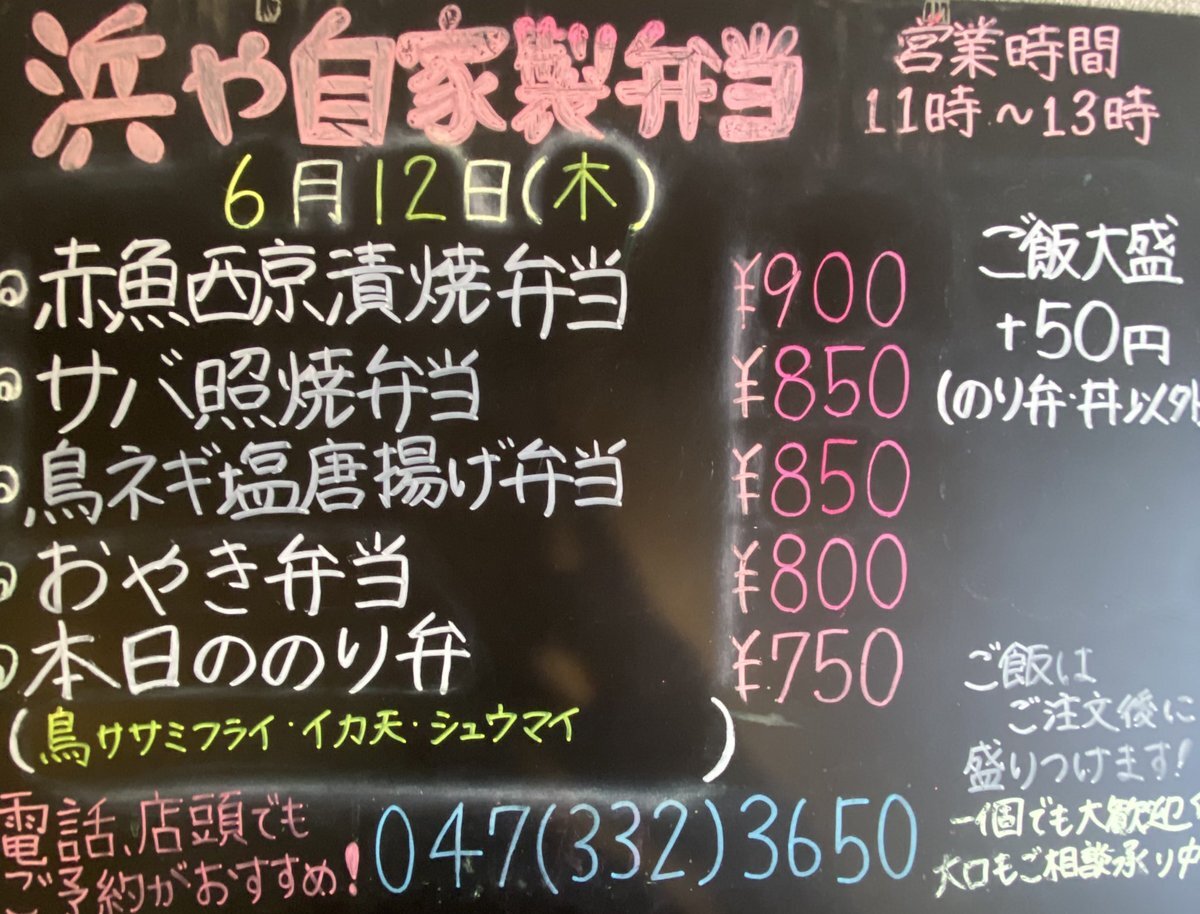 浜や自家製弁当
営業時間
11時～13時
6月12日(木)
赤魚西京漬焼弁当 ¥900
サバ照焼弁当 ¥850
鳥ネギ塩唐揚げ弁当 ¥850
おやき弁当 ¥800
本日ののり弁 ¥750
(鳥ササミフライ・イカ天・シュウマイ)
ご飯大盛
+50円
(のり弁・丼以外
ご飯は
ご注文後に
盛りつけます!
一個でも大歓迎
大口もご相談承り中
電話、店頭でも
ご予約がおすすめ!
047(332)3650